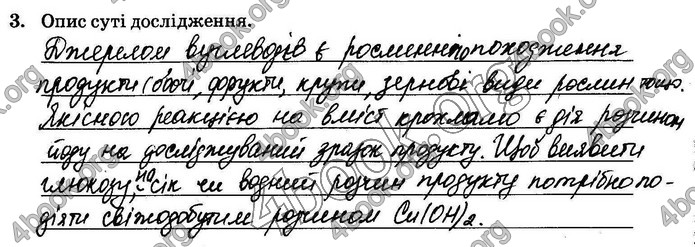 3. Опис суті дослідження.
Джерелом вуглеводів є рослинного походження
продукти (овочі, фрукти, крупи, зернові види рослин тощо.
Якісною реакцією на вміст крохмалю є дія розчином
йоду на досліджуваний зразок продукту. Щоб виявити
глюкозу, на сік чи водний розчин продукту потрібно по-
діяти свіжодобутим розчином Cu(OH)2.
4book.org